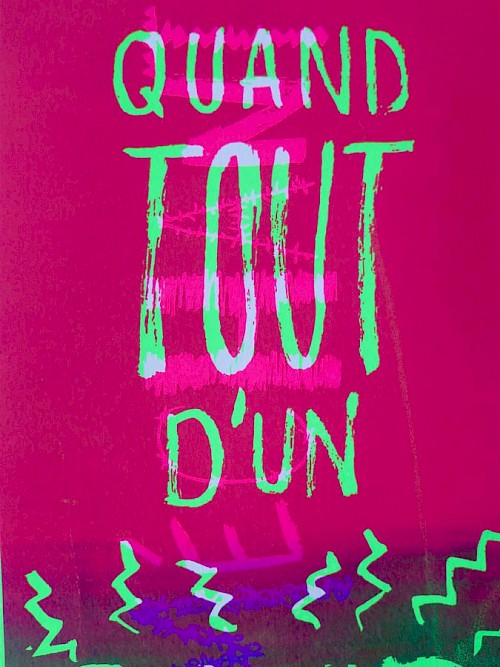 QUAND
TOUT
D'UN